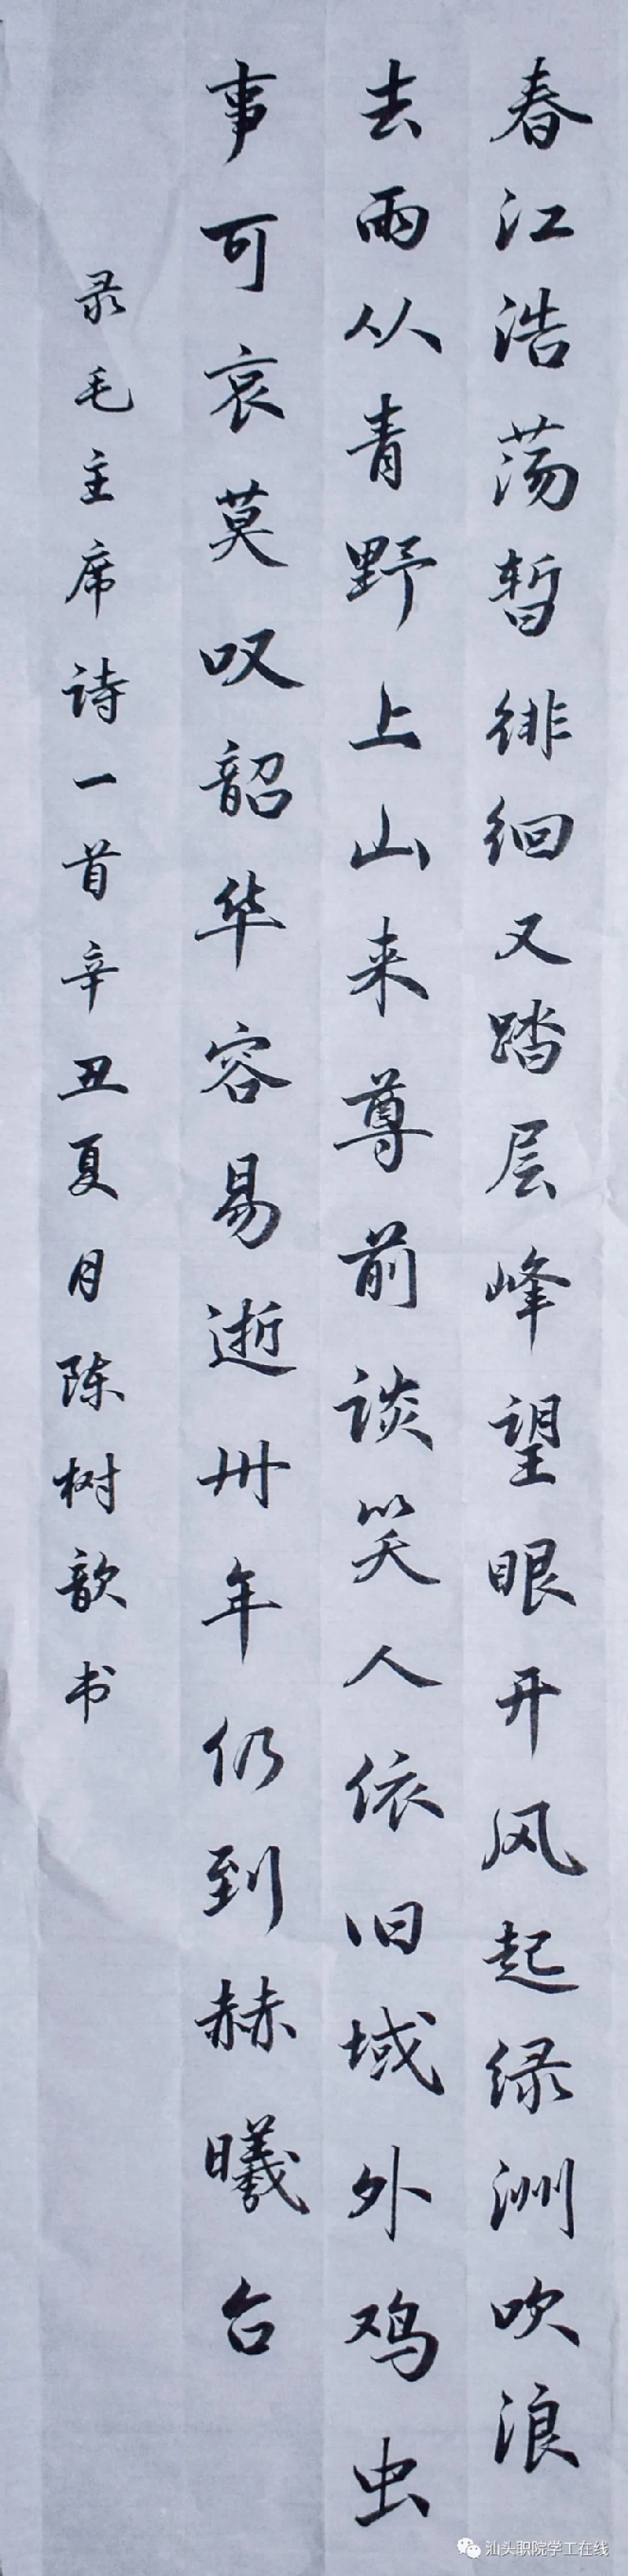 春江浩荡暂徘徊又踏层峰望眼开风起绿洲吹浪
去雨从青野上山来尊前谈笑人依旧域外鸡虫
事可哀莫叹韶华容易逝卅年仍到赫曦台
录毛主席诗一首辛丑夏月陈树歆书
汕头职院学工在线